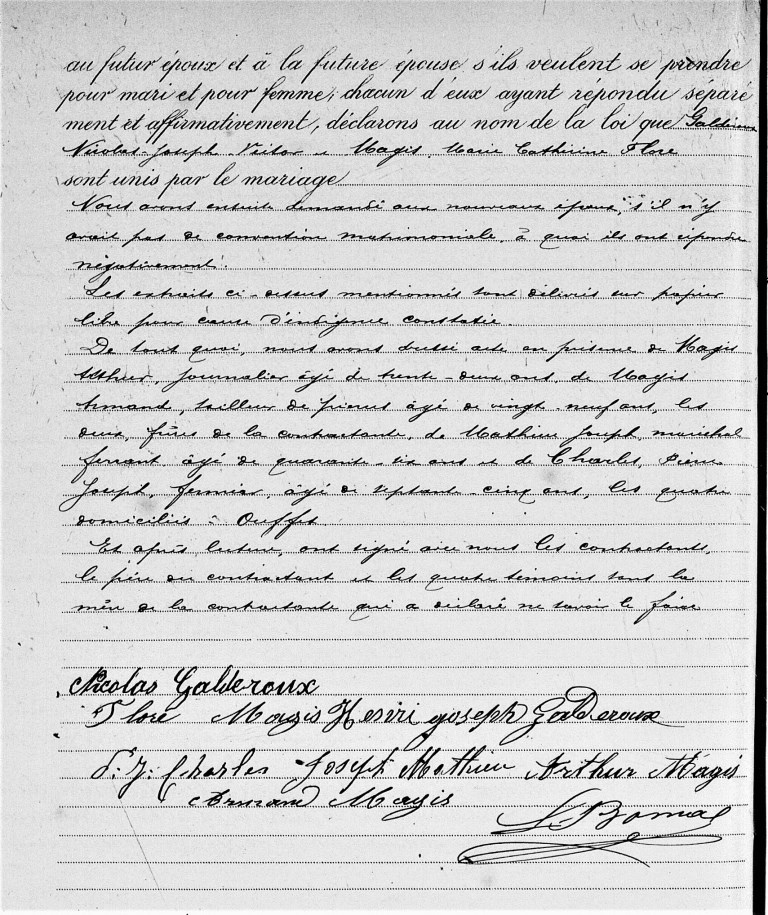 au futur époux et à la future épouse s'ils veulent se prendre
pour mari et pour femme; chacun d'eux ayant répondu séparé
ment et affirmativement, déclarons au nom de la loi que Galderoux
Nicolas Joseph Victor et Magis, Marie Catherine Flore
sont unis par le mariage
Nous avons ensuite demandé aux nouveaux époux, s'il n'y
avait pas de convention matrimoniale, à quoi ils ont répondu
négativement.
Les extraits ci-dessus mentionnés sont délivrés sur papier
libre pour cause d'indigence constatée.
De tout quoi, nous avons dressé acte en présence de Magis
Arthur, journalier âgé de trente deux ans, de Magis
Armand, tailleur de pierres âgé de vingt-neuf ans, les
deux, frères de la contractante, de Mathieu Joseph, maréchal
ferrant, âgé de quarante-six ans et de Charles, Pierre
Joseph, fermier, âgé de septante-cinq ans, les quatre
domiciliés à Ouffet.
Et après lecture, ont signé avec nous les contractants,
le père du contractant et les quatre témoins sauf la
mère de la contractante qui a déclaré ne savoir le faire
Nicolas Galderoux
Flore Magis Henri joseph Galderoux
P. J. Charles Joseph Mathieu Arthur Magis
Armand Magis